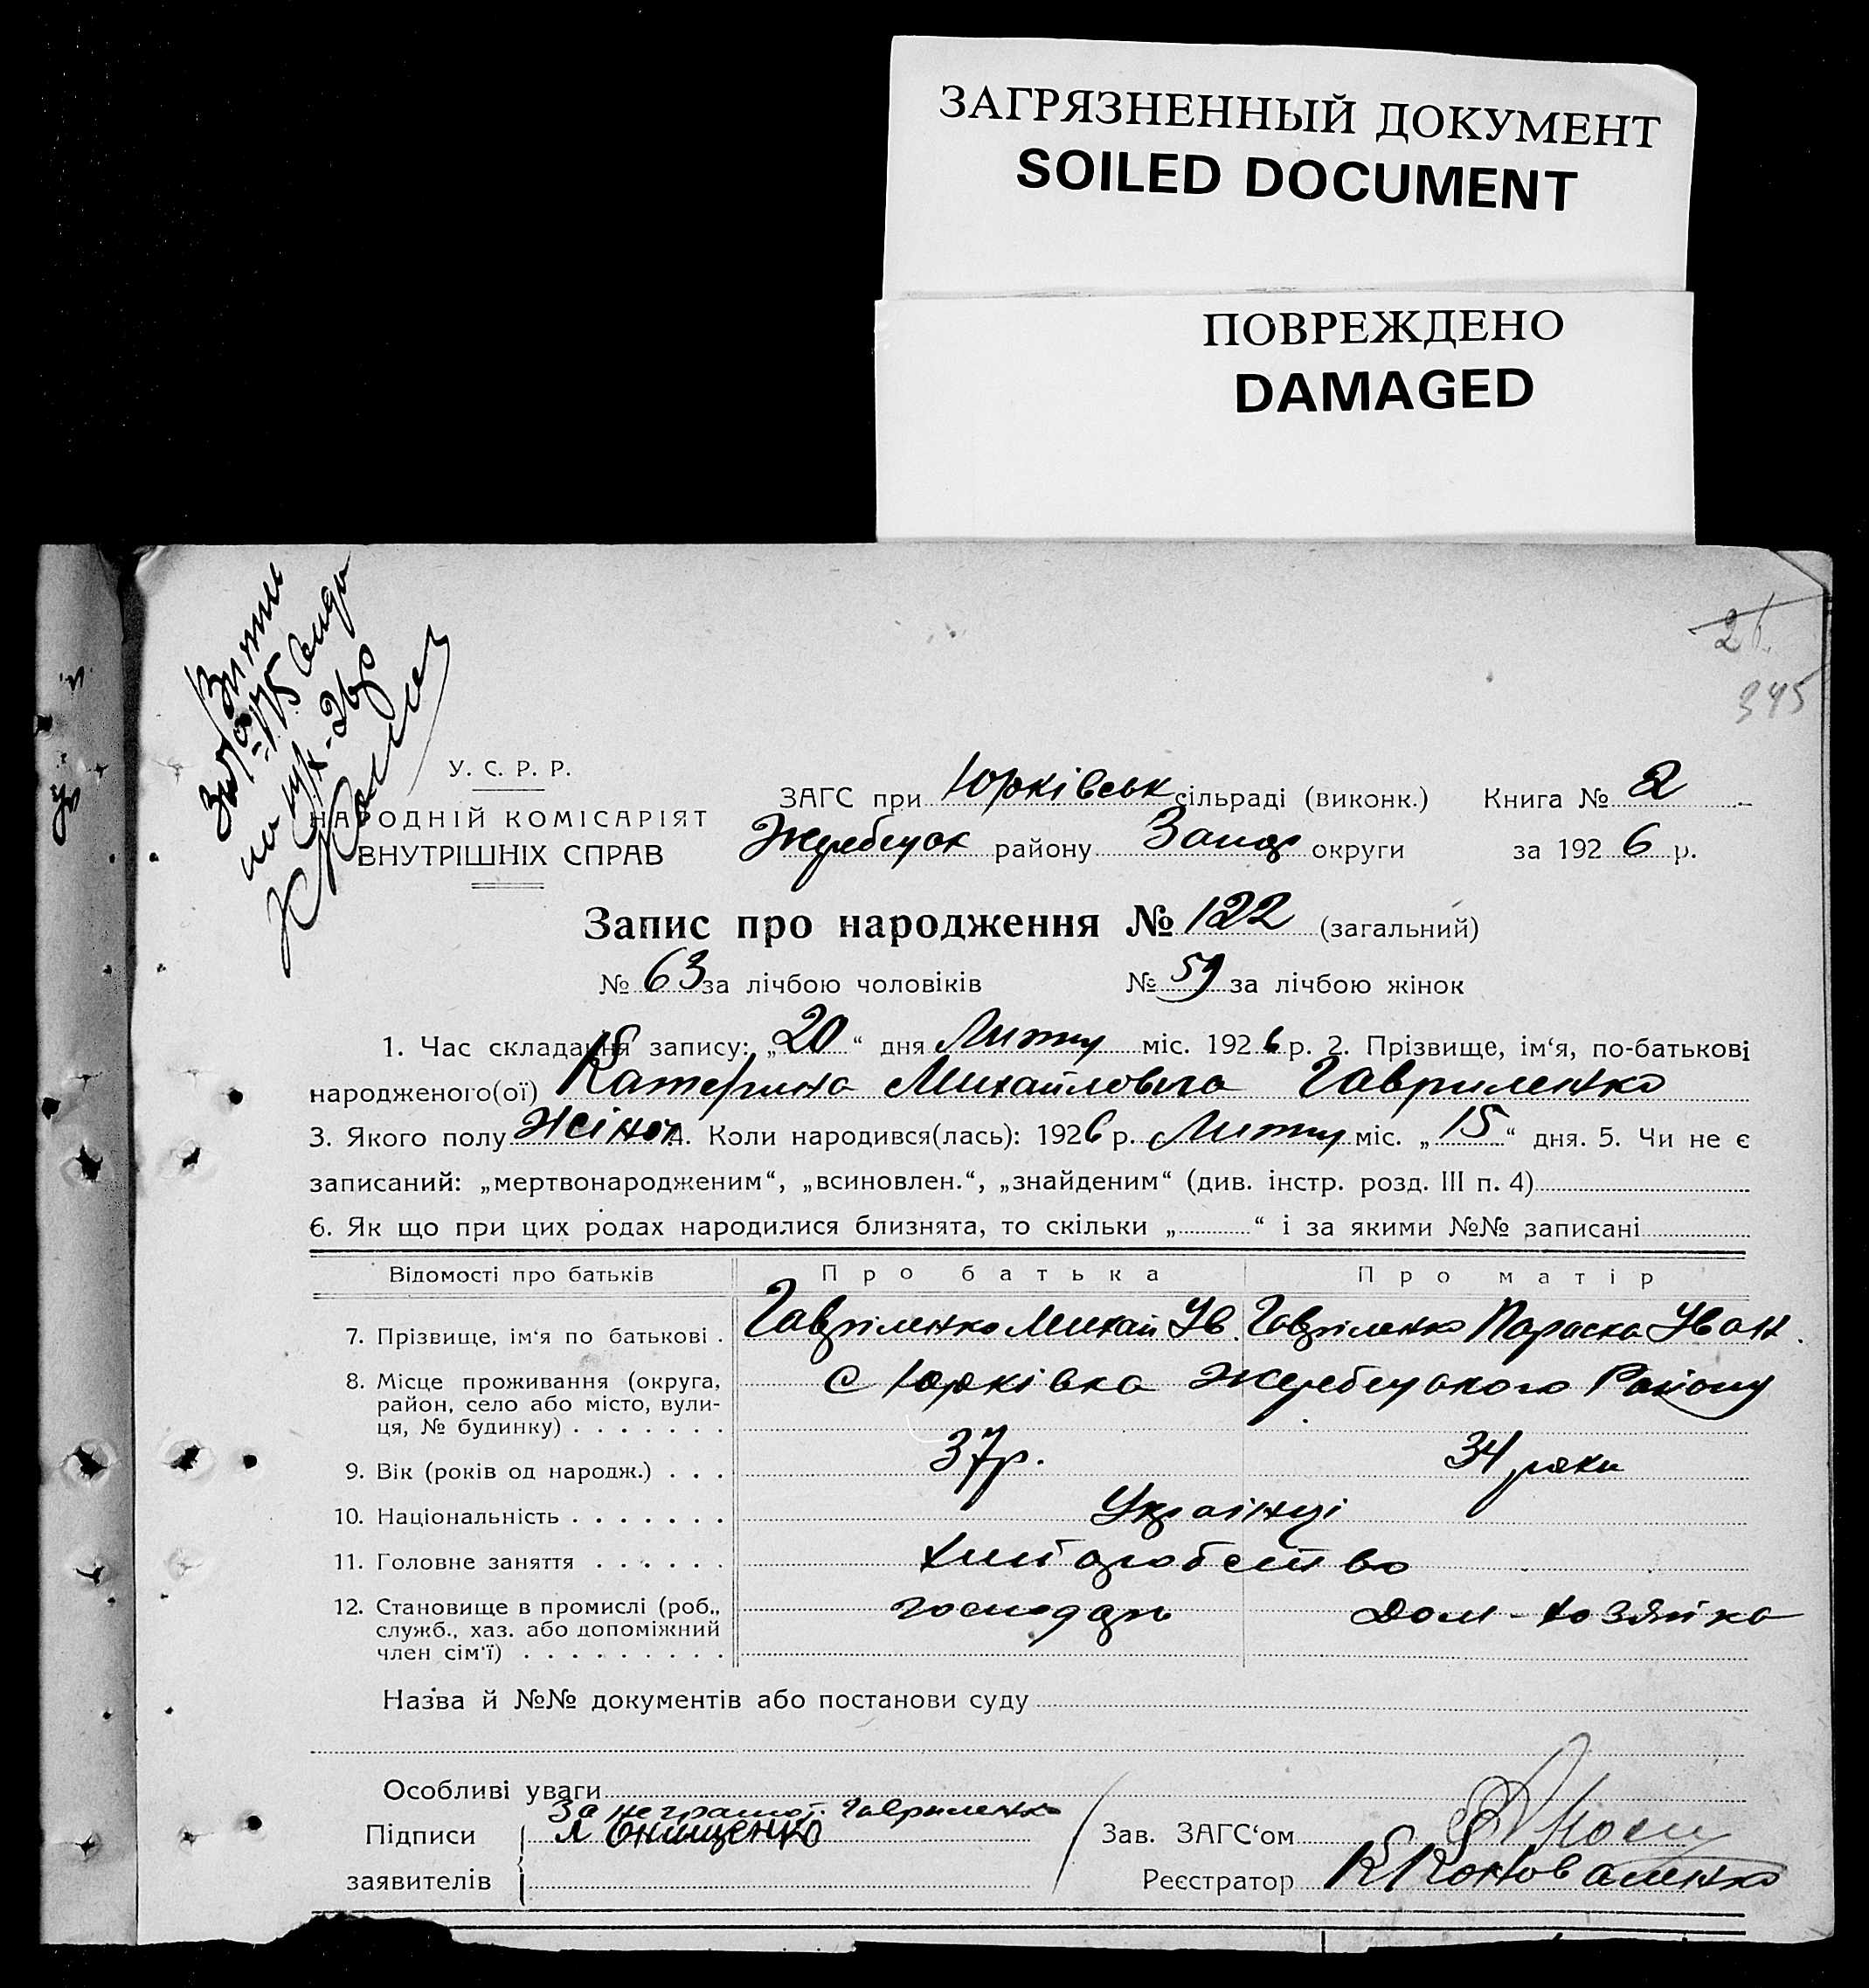 ЗАГРЯЗНЕННЫЙ ДОКУМЕНТ
SOILED DOCUMENT
ПОВРЕЖДЕНО
DAMAGED
345
У. С. Р. Р.
НАРОДНІЙ КОМІСАРІЯТ
ВНУТРІШНІХ СПРАВ
ЗАГС при Юрківськ сільраді (виконк.) Книга № 2
Жеребецьк району Запор округи за 1926 р.
Запис про народження № 122 (загальний)
№ 63 за лічбою чоловіків № 59 за лічбою жінок
1. Час складання запису: „20“ дня Лютну міс. 1926 р. 2. Прізвище, ім‘я, по-батькові
народженого(ої) Катерина Михайловна Гавриленко
3. Якого полу Жіноч 4. Коли народився(лась): 1926 р. Лютну міс. „15“ дня. 5. Чи не є
записаний: „мертвонародженим“, „всиновлен.“, „знайденим“ (див. інстр. розд. III п. 4)
6. Як що при цих родах народилися близнята, то скільки „ “ і за якими №№ записані
Відомості про батьків Про батька Про матір
7. Прізвище, ім‘я по батькові . Гавріленко Михай Ив. Гавріленко Параска Иван.
8. Місце проживання (округа, с Юрківка Жеребецького Району
район, село або місто, вули-
ця, № будинку) . . . . . . .
9. Вік (років од народж.) . . . 37 р. 34 роки
10. Національність . . . . . . . Українці
11. Головне заняття . . . . . . хліборобство
12. Становище в промислі (роб., господарь Дом-хозяйка
служб., хаз. або допоміжний
член сім‘ї) . . . . . . . . .
Назва й №№ документів або постанови суду
Особливі уваги
За неграмот. Гавриленко
Підписи Онищенко Зав. ЗАГС‘ом
заявителів Реєстратор К Коноваленко